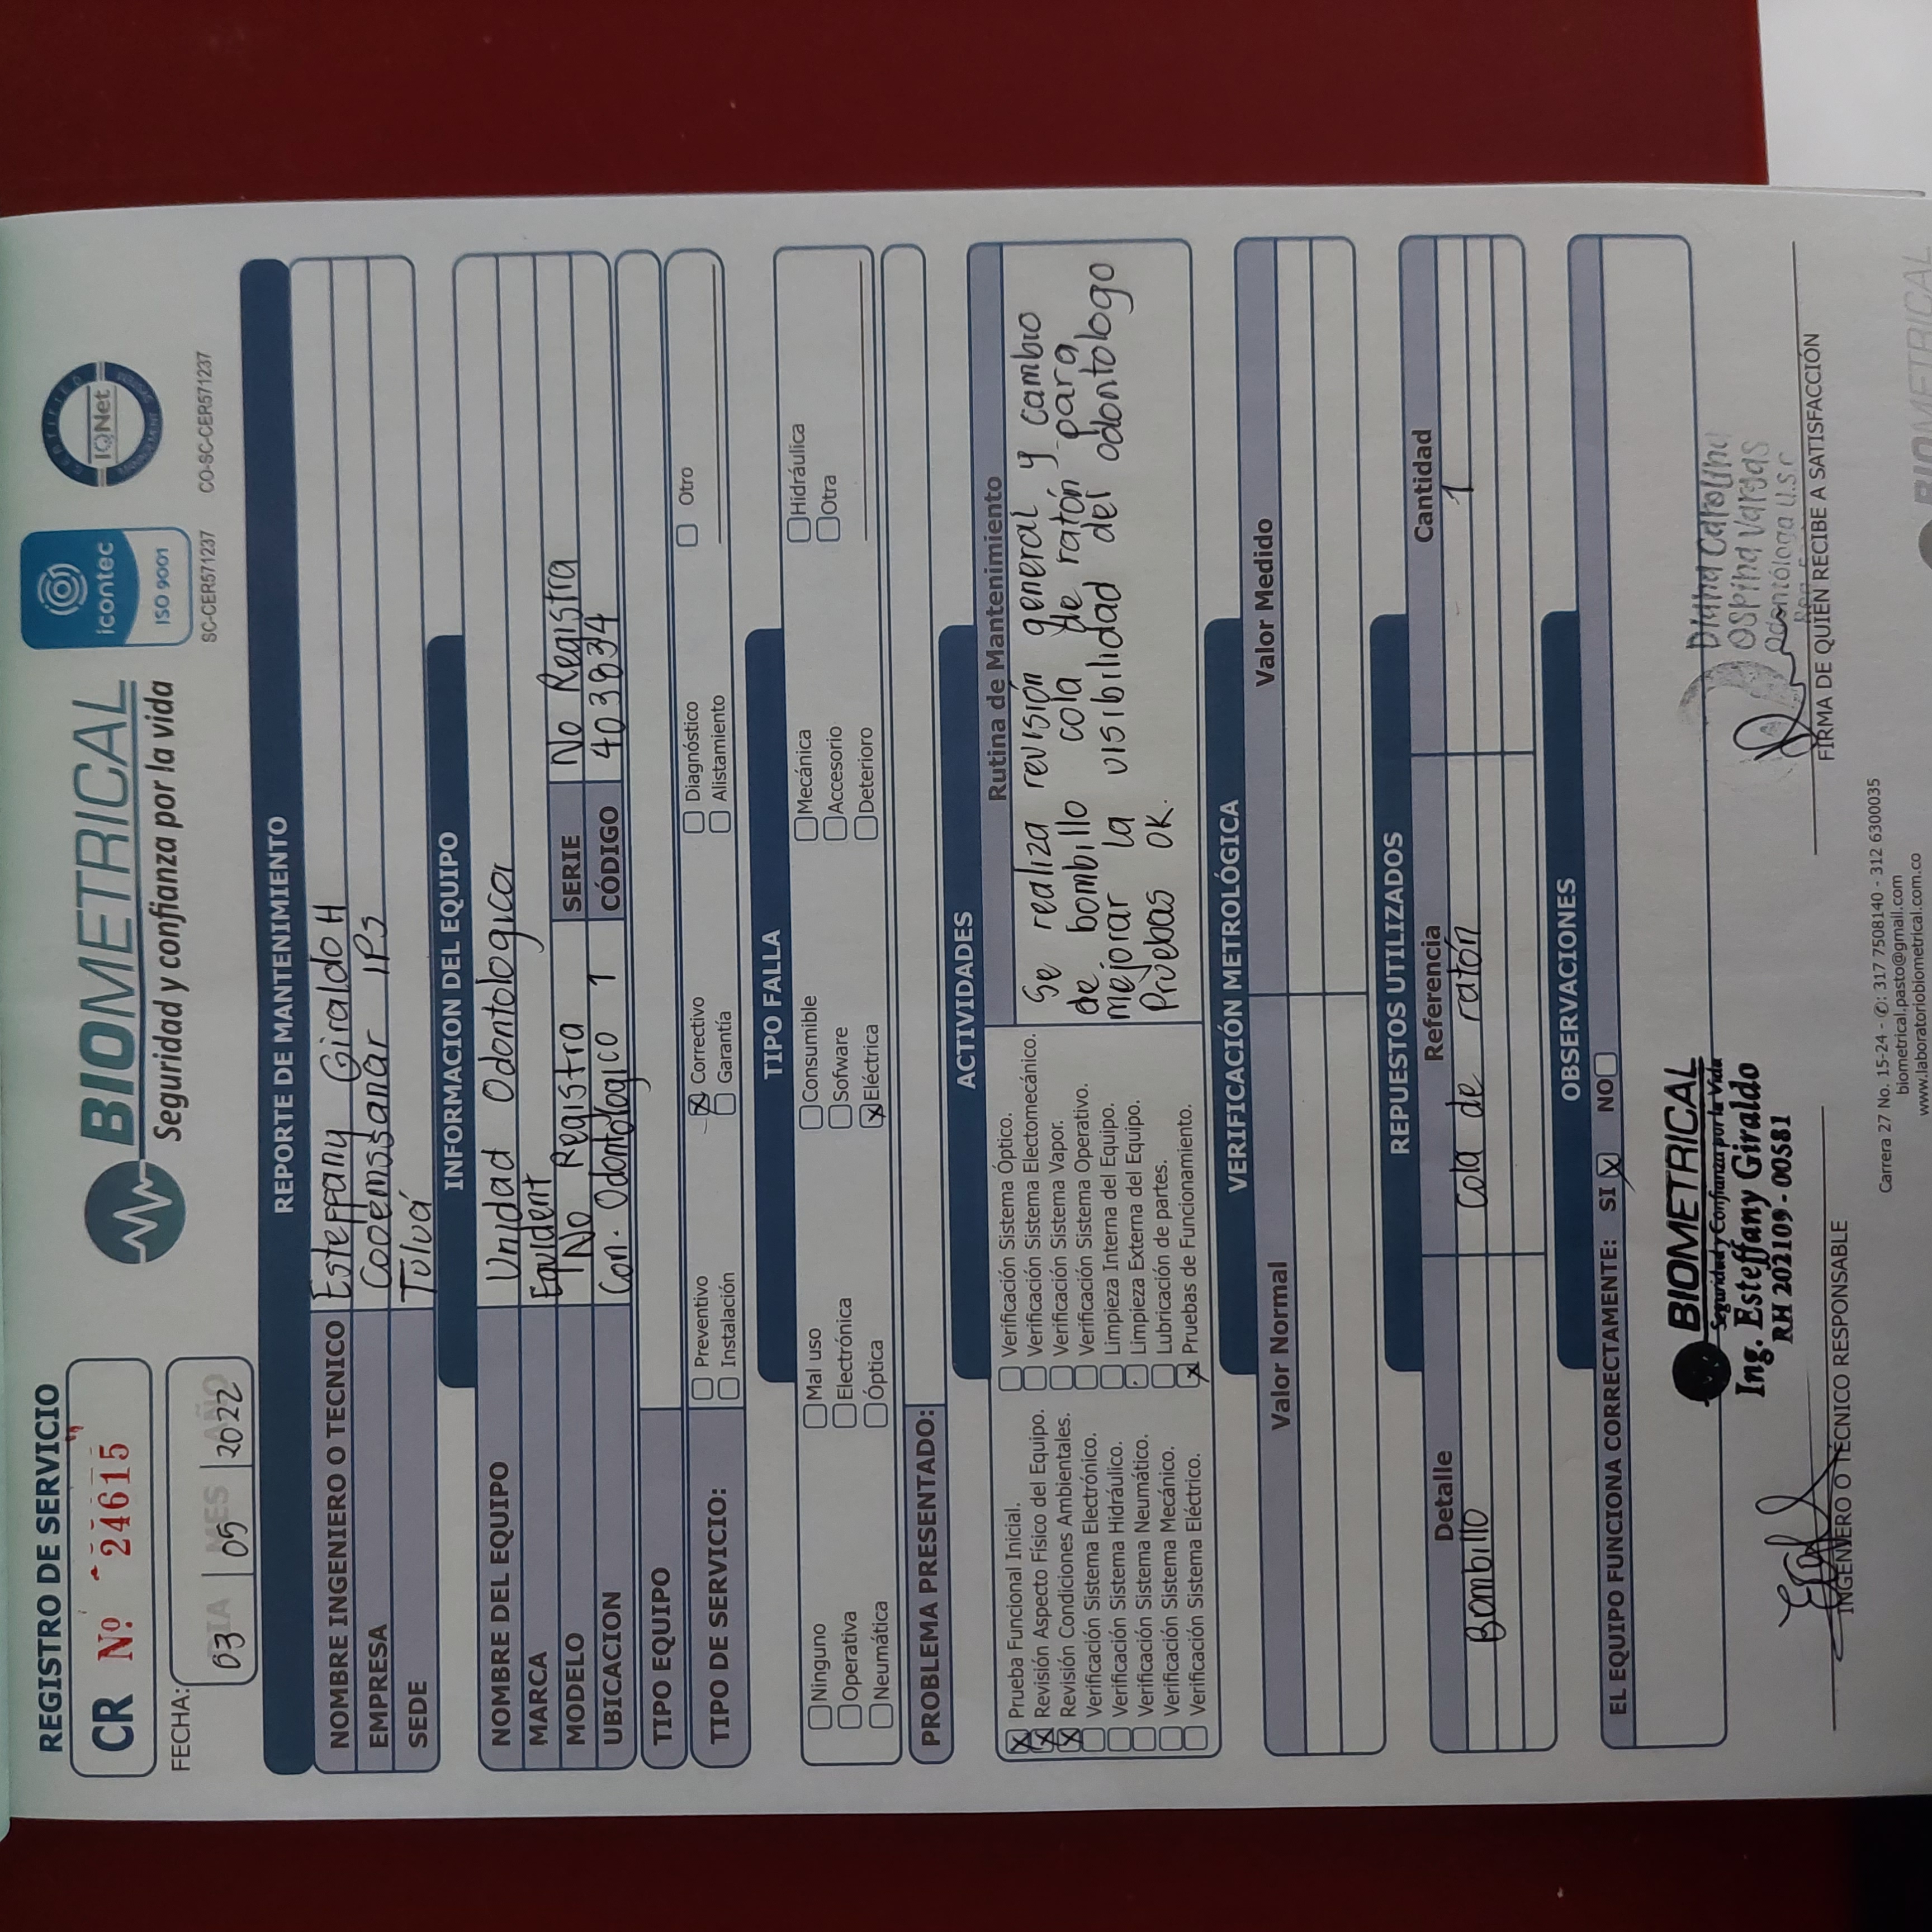 REGISTRO DE SERVICIO
CR Nº 24615
BIOMETRICAL
Seguridad y confianza por la vida
icontec
ISO 9001
SC-CER571237
CERTIFIED
IQNet
MANAGEMENT SYSTEM
CO-SC-CER571237
FECHA: DIA MES AÑO
03 05 2022
REPORTE DE MANTENIMIENTO
NOMBRE INGENIERO O TECNICO Esteffany Giraldo H
EMPRESA Cooemssanar IPS
SEDE Tuluá
INFORMACION DEL EQUIPO
NOMBRE DEL EQUIPO Unidad Odontologica
MARCA Equident
MODELO No Registra SERIE No Registra
UBICACION Con. Odontologico 1 CÓDIGO 403834
TIPO EQUIPO
TIPO DE SERVICIO:
Preventivo X Correctivo Diagnóstico Otro
Instalación Garantía Alistamiento
TIPO FALLA
Ninguno Mal uso Consumible Mecánica Hidráulica
Operativa Electrónica Sofware Accesorio Otra
Neumática Óptica X Eléctrica Deterioro
PROBLEMA PRESENTADO:
ACTIVIDADES
X Prueba Funcional Inicial.
X Revisión Aspecto Físico del Equipo.
X Revisión Condiciones Ambientales.
Verificación Sistema Electrónico.
Verificación Sistema Hidráulico.
Verificación Sistema Neumático.
Verificación Sistema Mecánico.
Verificación Sistema Eléctrico.
Verificación Sistema Óptico.
Verificación Sistema Electomecánico.
Verificación Sistema Vapor.
Verificación Sistema Operativo.
Limpieza Interna del Equipo.
Limpieza Externa del Equipo.
Lubricación de partes.
X Pruebas de Funcionamiento.
Rutina de Mantenimiento
Se realiza revisión general y cambio
de bombillo cola de ratón para
mejorar la visibilidad del odontologo
Pruebas OK.
VERIFICACIÓN METROLÓGICA
Valor Normal Valor Medido
REPUESTOS UTILIZADOS
Detalle Referencia Cantidad
Bombillo cola de ratón 1
OBSERVACIONES
EL EQUIPO FUNCIONA CORRECTAMENTE: SI X NO
BIOMETRICAL
Seguridad y Confianza por la Vida
Ing. Esteffany Giraldo
RH 202109 - 00581
INGENIERO O TÉCNICO RESPONSABLE
Diana Carolina
Ospina Vargas
Odontóloga U.S.C
FIRMA DE QUIEN RECIBE A SATISFACCIÓN
Carrera 27 No. 15-24 - ✆: 317 7508140 - 312 6300035
biometrical.pasto@gmail.com
www.laboratoriobiometrical.com.co
BIOMETRICAL